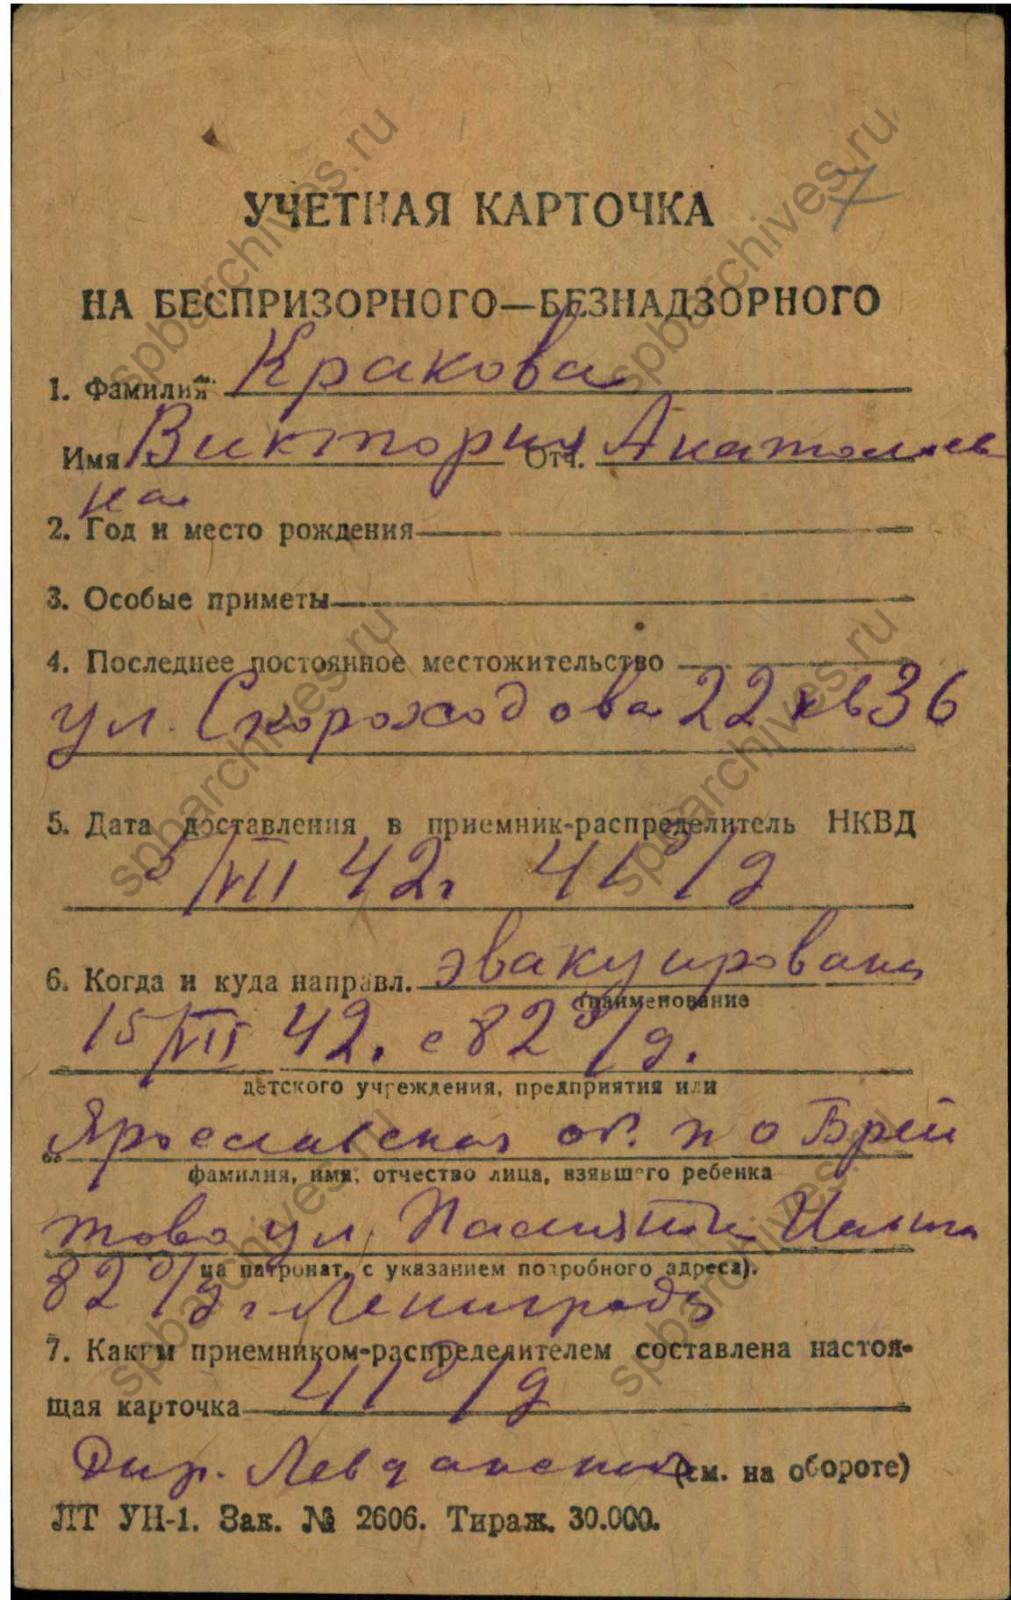 7
УЧЕТНАЯ КАРТОЧКА
НА БЕСПРИЗОРНОГО—БЕЗНАДЗОРНОГО
1. Фамилия Кракова
Имя Виктория Отч. Анатольев
на
2. Год и место рождения
3. Особые приметы
4. Последнее постоянное местожительство
ул. Скороходова 22 кв 36
5. Дата доставления в приемник-распределитель НКВД
5/VII 42г 41 д/д
6. Когда и куда направл. эвакуирована
(наименование
15/VII 42. с 82 д/д.
детского учреждения, предприятия или
Ярославская об. п о Брей
фамилия, имя, отчество лица, взявшего ребенка
тово ул
на патронат, с указанием подробного адреса).
82 д/д г Ленинграда
7. Каким приемником-распределителем составлена настоя-
щая карточка 41 д/д
Дир. (см. на обороте)
ЛТ УН-1. Зак. № 2606. Тираж. 30.000.
spbarchives.ru
spbarchives.ru
spbarchives.ru
spbarchives.ru
spbarchives.ru
spbarchives.ru